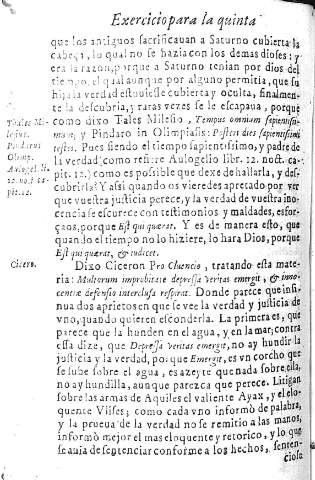 Exercicio para la quinta
que los antiguos sacrificauan a Saturno cubierta la
cabeça, lo qual no se hazia con los demas dioses: y
era la razon, porque a Saturno tenian por dios del
tiempo, el qual aunque por alguno permitia, que su
hija la verdad estuuiesse cubierta y oculta, finalmen-
te la descubria, y raras vezes se le escapaua, porque
como dixo Tales Milesio, Tempus omnium sapientissi-
mum; y Pindaro in Olimpiasis: Posteri dies sapientissimi
testes. Pues siendo el tiempo sapientissimo, y padre de
la verdad (como refiere Aulogelio libr. 12. noct. ca-
pit. 12.) como es possible que dexe de hallarla, y des-
cubrirla? Y assi quando os vieredes apretado por ver
que vuestra justicia perece, y la verdad de vuestra ino-
cencia se escurece con testimonios y maldades, esfor-
çaos, porque Est qui quærat. Y es de manera esto, que
quando el tiempo no lo hiziere, lo hara Dios, porque
Est qui quærat, & iudicet.
Tales Mi-
lesius.
Pindarus
Olimp.
Aulogel. li.
12. no. t. ca
pit. 12.
Cicero.
Dixo Ciceron Pro Cluencio, tratando esta mate-
ria: Multorum improbitate depressa veritas emergit, & inno-
centiæ defensio interclusa respirat. Donde parece que insi-
nua dos aprietos en que se vee la verdad y justicia de
vno, quando quieren esconderla. La primera es, que
parece que la hunden en el agua, y en la mar; contra
essa dize, que Depressa veritas emergit, no ay hundir la
justicia y la verdad, porque Emergit, es vn corcho que
se sube sobre el agua, es azeyte que nada sobre ella,
no ay hundilla, aunque parezca que perece. Litigan
sobre las armas de Aquiles el valiente Ayax, y el elo-
quente Vlises; como cada vno informò de palabra,
y la prueua de la verdad no se remitio a las manos,
informò mejor el mas eloquente y retorico, y lo que
se auia de sentenciar conforme a los hechos, senten-
ciose